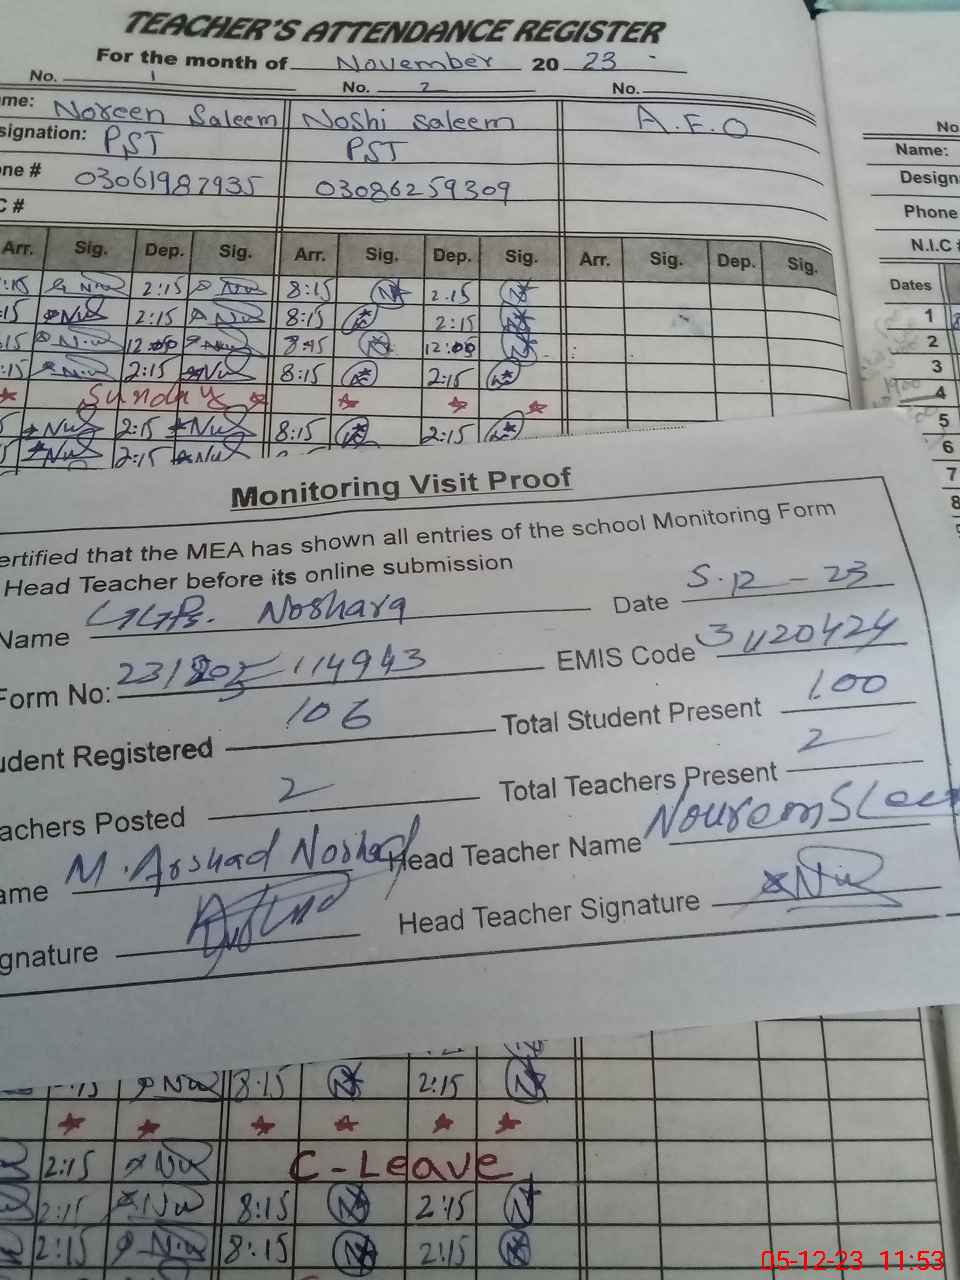 TEACHER'S ATTENDANCE REGISTER
For the month of November 20 23
No. 1 No. 2 No.
me: Noreen Saleem Noshi Saleem A.E.O
signation: PST PST
ne # 03061987935 03086259309
C #
Arr. Sig. Dep. Sig. Arr. Sig. Dep. Sig. Arr. Sig. Dep. Sig.
:15 2:15 8:15 2:15
:15 2:15 8:15 2:15
:15 12:00 8:15 12:00
:15 2:15 8:15 2:15
Sunday
2:15 8:15 2:15
2:15
No
Name:
Design
Phone
N.I.C #
Dates
1
2
3
4
5
6
7
8
Monitoring Visit Proof
ertified that the MEA has shown all entries of the school Monitoring Form
Head Teacher before its online submission
Name GGPS. Noshara Date 5-12-23
Form No: 114943 EMIS Code 31120424
udent Registered 106 Total Student Present 100
achers Posted 2 Total Teachers Present 2
ame M. Arshad Head Teacher Name
gnature Head Teacher Signature
:15 8:15 2:15
2:15 C-Leave
2:15 8:15 2:15
2:15 8:15 2:15
05-12-23 11:53